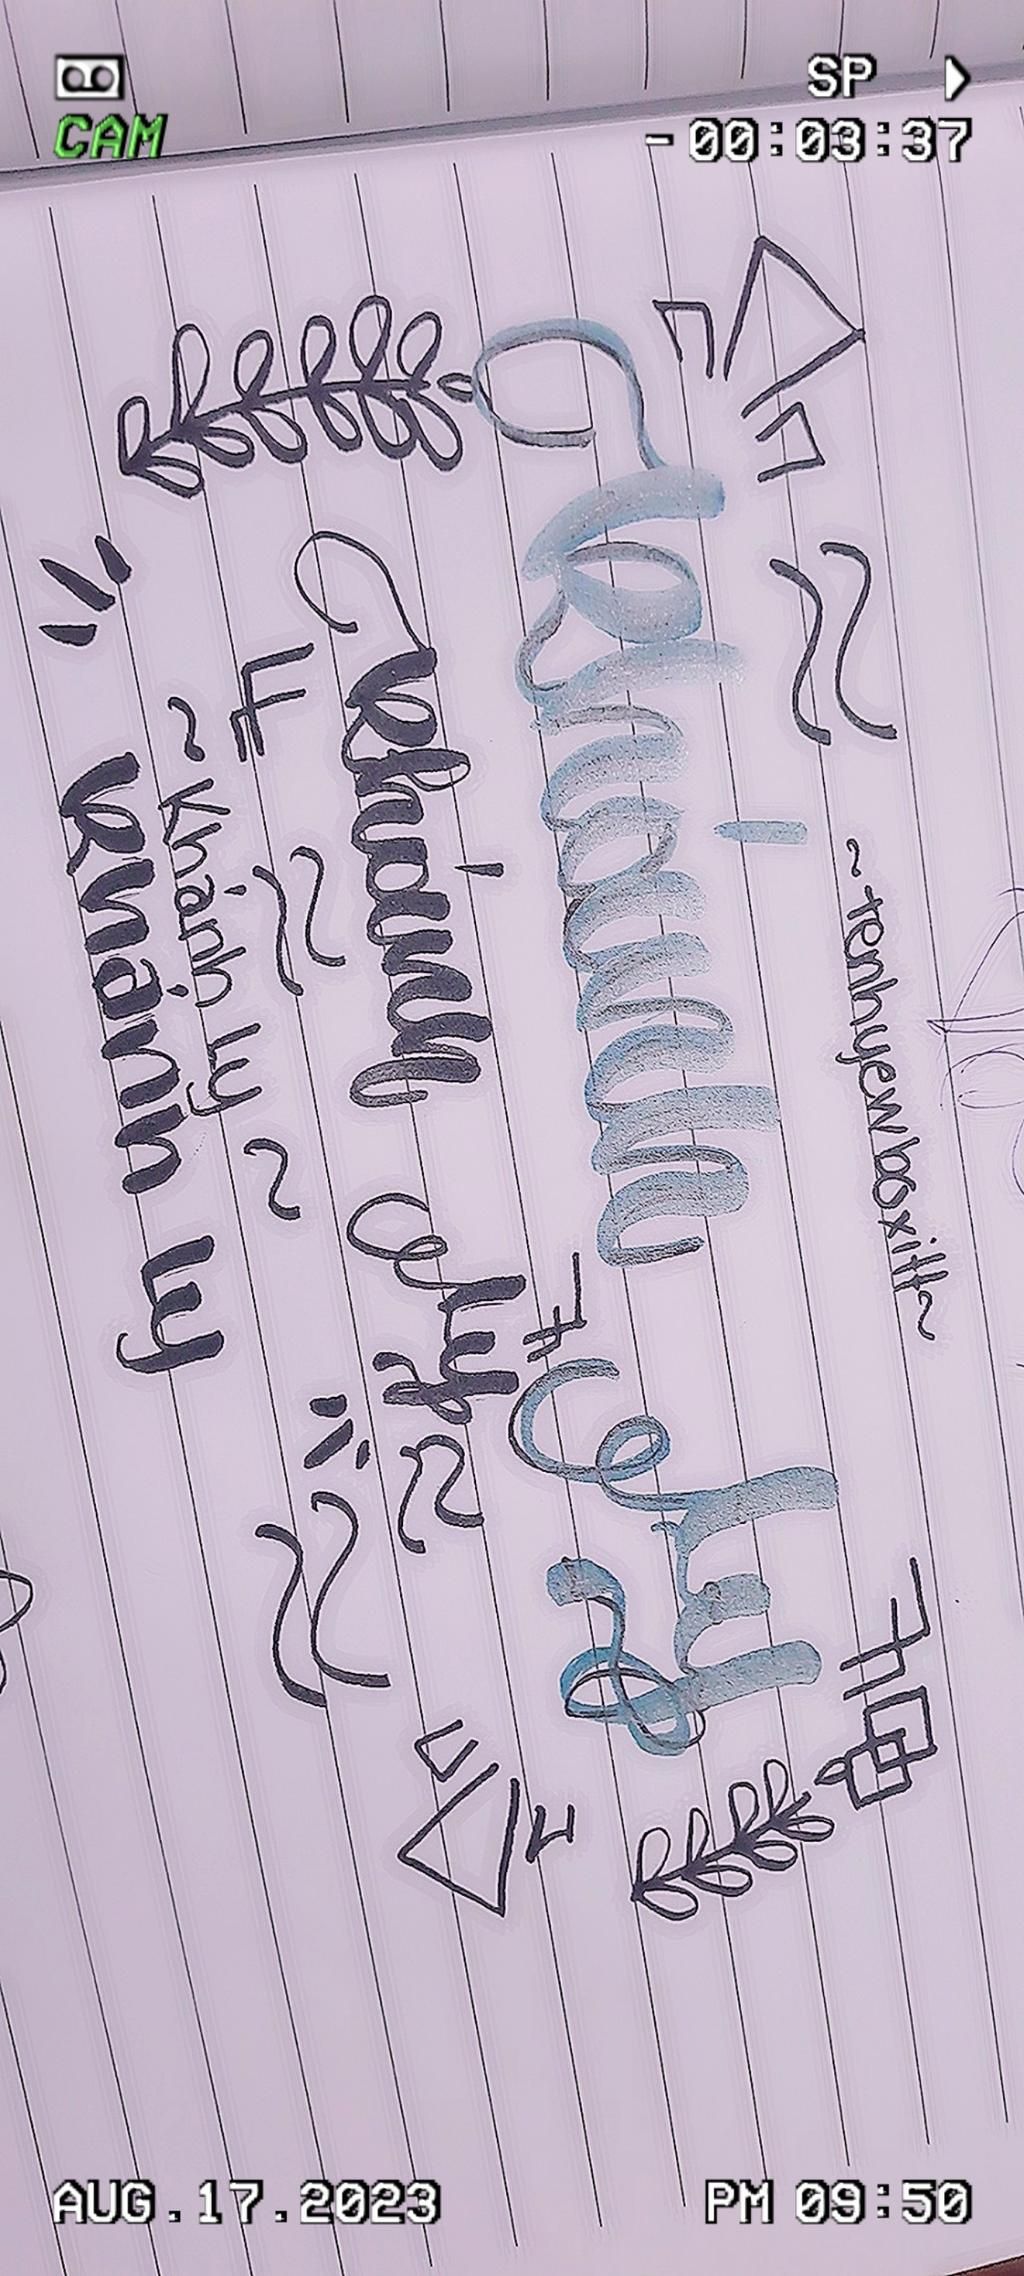 CAM
SP
-00:03:37
~tenhyewboxitt~
Khánh Ly
Khánh Ly
~Khánh Ly~
Khánh Ly
AUG.17.2023
PM 09:50